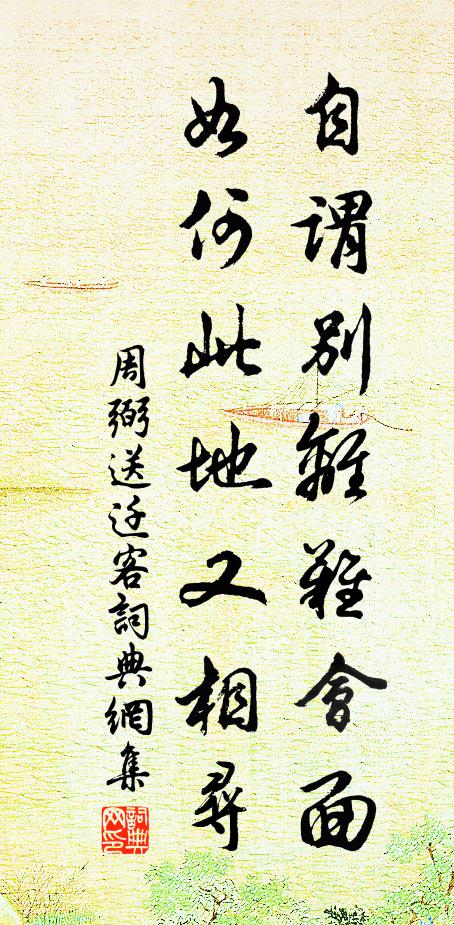 自谓别離難會面
如何此地又相尋
周弼送迁客詞典網集
詞典
网印